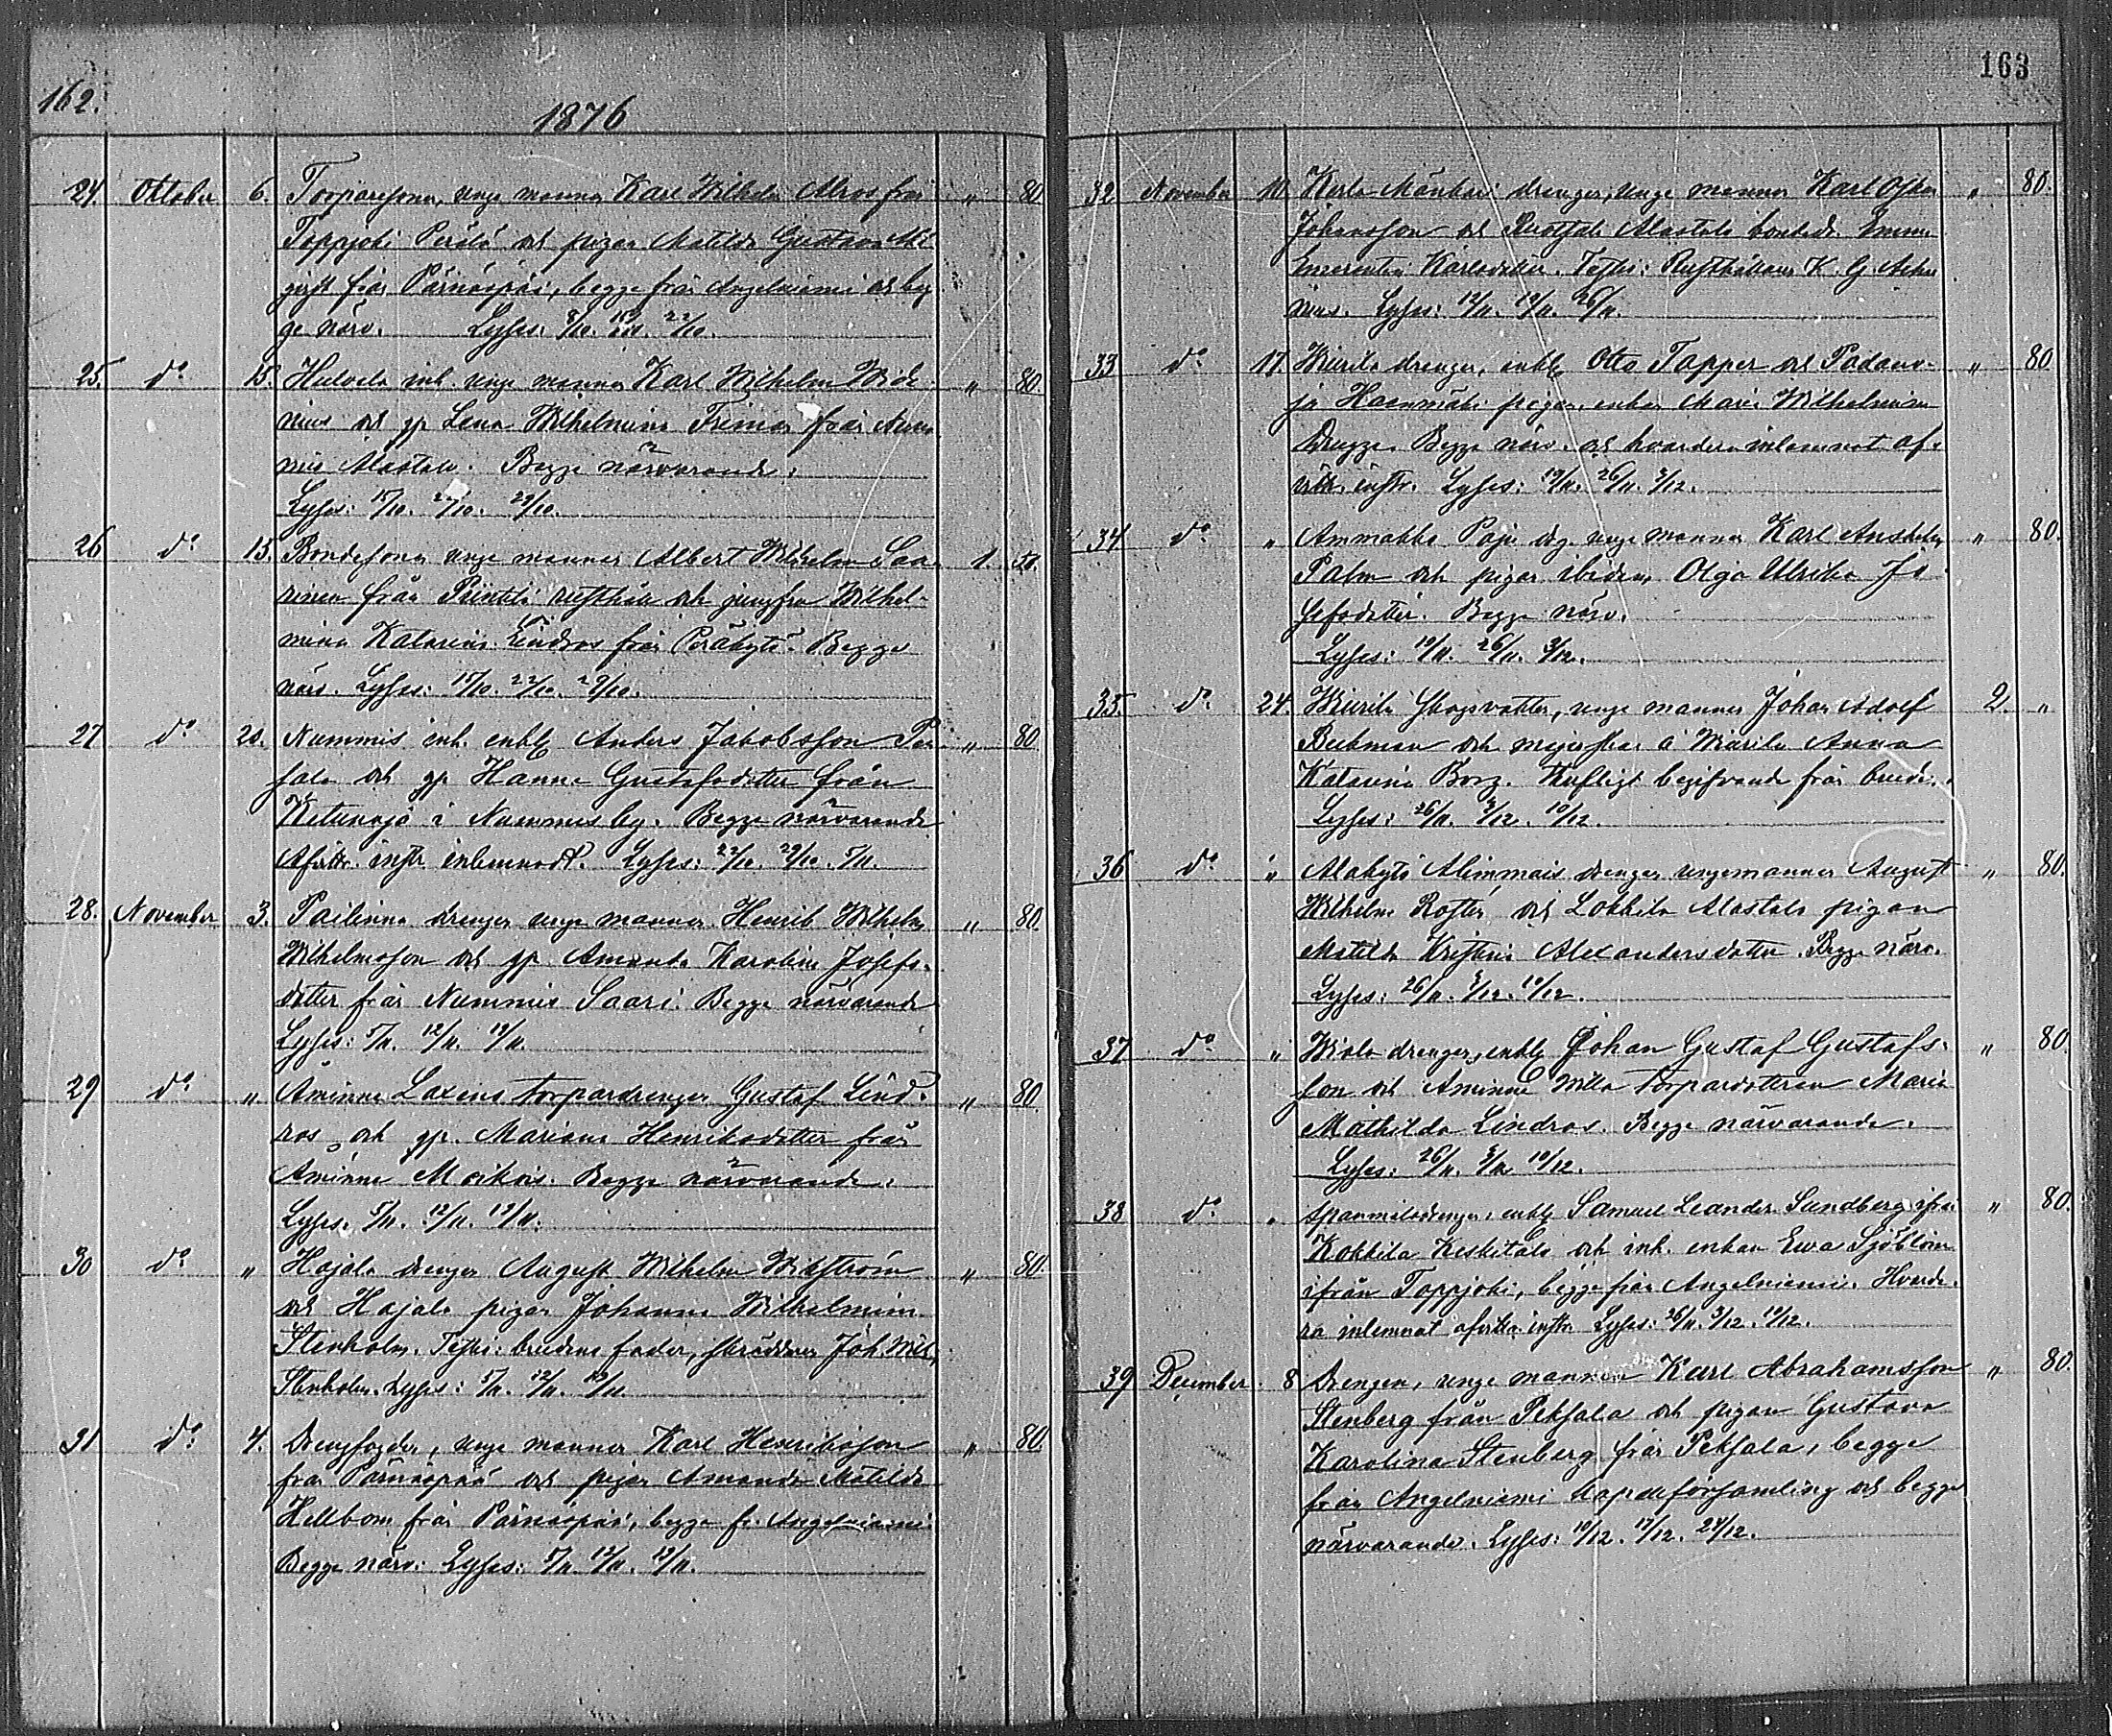 162.
1876
24. Oktober 6. Torparesonen, unge mannen Karl Wilhelm Alros från „ 80
Toppjoki Perälä och pigan Matilda Gustava
från Pärnäspää, begge från Angelniemi och beg
ge närv. Lyses: 8/10. 15/10. 22/10.
25. do 15. inh. unge mannen Karl Wilhelm Wide „ 80.
nius och gp Lena Wilhelmina Friman från Num
mis Alastalo. Begge närvarande.
Lyses: 15/10. 22/10. 29/10.
26 do 15. Bondesonen unge mannen Albert Wilhelm Saa 1. 50.
rinen från Prinkilä rusthåll och jungfru Wilhel-
mina Katarina Lindros från Peräkytö. Begge
närv. Lyses: 15/10. 22/10. 29/10.
27. do 20. Nummis inh. enkl Anders Jakobsson Per „ 80
salo och gp Hanna Gustafsdotter från
Ketunoja i Nummis by. Begge närvarande
Afvittr. instr inlemnadt. Lyses: 22/10. 29/10. 5/11.
28. November 3. Pailinna drengen unge mannen Henrik Wilhelm „ 80.
Wilhelmsson och gp. Amanda Karolina Josefs-
dotter från Nummis Saari. Begge närvarande
Lyses: 5/11. 12/11. 19/11.
29 do „ Åminne Laxens torpardrengen Gustaf Lind- „ 80.
ros och gp. Mariana Henriksdotter från
Åminne Begge närvarande.
Lyses. 5/11. 12/11. 19/11.
30 do „ Hajala drengen August Wilhelm Wikström „ 80.
och Hajala pigan Johanna Wilhelmina
Stenholm. Testis: brudens fader, skräddaren Joh. Wilh.
Stenholm. Lyses: 5/11. 12/11. 19/11
31 do 4. Drengfogden, unge mannen Karl Henriksson „ 80.
från Pärnäspää och pigan Amanda Matilda
Hellbom från Pärnäspää, begge fr. Angelniemi.
Begge närv: Lyses: 5/11. 12/11. 19/11.
163
32 November 10. drengen, unge mannen Karl Oskar „ 80.
Johansson och Alastalo bonded. Emma
Emerentia Karlsdotter. Testis: Rusthållaren K. G.
nius. Lyses: 12/11. 19/11. 26/11.
33 do 17. Wiurila drengen, enkl Otto Tapper och Padano- „ 80
ja Haenmäki pigan, enkan Maria Wilhelmina
Drugge. Begge närv. och hvardera inlemnat af-
vittr. instr. Lyses: 19/11. 26/11. 3/12.
34 do „ Ammakko Paju drg. unge mannen Karl Anshelm „ 80.
Palm och pigan ibidem Olga Ulrika Jo
sefsdotter. Begge närv.
Lyses: 19/11. 26/11. 3/12.
35. do 24. Wiurila skogsvakten, unge mannen Johan Adolf 2. „
Beckman och mejerskan å Wiurila Anna
Katarina Borg. Skriftligt begifvande från bruden.
Lyses: 26/11. 3/12. 10/12.
36 do „ Alakytö Alimmais drengen ungemannen August „ 80.
Wilhelm Roslin och Lokkila Alastalo pigan
Matilda Kristina Alexandersdotter. Begge närv.
Lyses: 26/11. 3/12. 10/12.
37 do „ drengen, enkl Johan Gustaf Gustafs- „ 80.
son och Åminne Nilla torpardottern Maria
Mathilda Lindros. Begge närvarande.
Lyses: 26/11. 3/12 10/12.
38 do „ Spanmålsdrengen, enkl Samuel Leander Sandberg ifrån „ 80.
Kokkila Keskitalo och inh. enkan Ewa Sjöblom
ifrån Toppjoki, begge från Angelniemi. Hvarde-
ra inlemnat afvittr. instr Lyses: 26/11. 3/12. 10/12.
39 December 8 Drengen, unge mannen Karl Abrahamsson „ 80.
Stenberg från Peksala och pigan Gustava
Karolina Stenberg från Peksala, begge
från Angelniemi kapellförsamling och begge
närvarande. Lyses: 10/12. 17/12. 24/12.